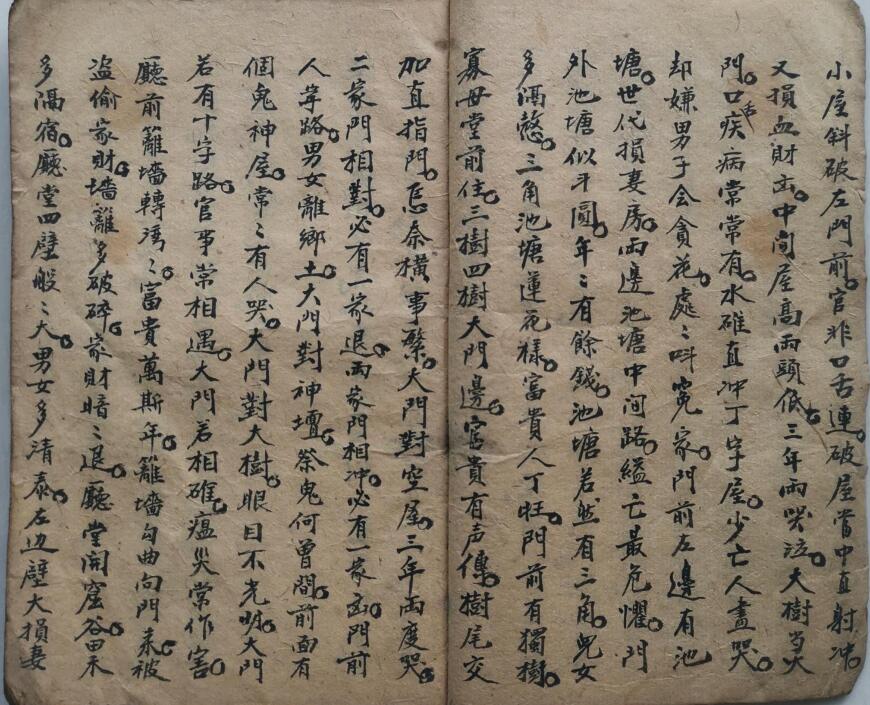 小屋斜破左門前。官非口舌連。破屋當中直射冲。
又損血財出。中间屋高両頭低。三年両哭泣。大樹当大
門。口舌疾病常常有。水碓直冲丁字屋。少亡人盡哭。
却嫌男子会貪花。處〻呌寃家。門前左邊有池
塘。世代損妻房。両邊池塘中间路。縊亡最危懼。門
外池塘似斗圓。年〻有餘錢。池塘若然有三角。兒女
多隔愁。三角池塘蓮花樣。富貴人丁旺。門前有獨樹。
寡母堂前住。三樹四樹大門邊。富貴有声傳。樹尾交
加直指門。忌奈横事繁。大門對空屋。三年両度哭。
二家門相對。必有一家退。両家門相冲。必有一家凶。門前
人字路。男女離鄉土。大門對神壇。祭鬼何曽間。前面有
個鬼神屋。常〻有人哭。大門對大樹。眼目不光明。大門
若有十字路。官事常相遇。大門若相碓。瘟災常作害。
廳前籬墻轉湾〻。富貴萬斯年。籬墻勾曲向門来。被
盗偷家財。墻籬多破碎。家財暗〻退。廳堂開窟谷。男女
多隔宿。廳堂四壁般〻大。男女多清泰。左边壁大損妻